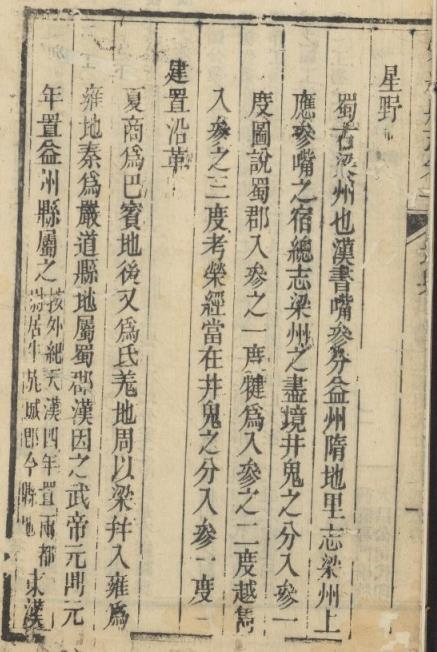 星野
蜀古梁州也漢書嘴參分益州隋地里志梁州上
應參嘴之宿總志梁州之盡境井鬼之分入參一
度圖說蜀郡入參之一度犍爲入參之二度越雋
入參之三度考榮經當在井鬼之分入參一度
建置沿革
夏商爲巴賓地後又爲氐羗地周以梁幷入雍爲
雍地秦爲嚴道縣地屬蜀郡漢因之武帝元鼎元
年置益州縣屬之
按外紀天漢四年置兩都
居牛城郡今縣地
東漢